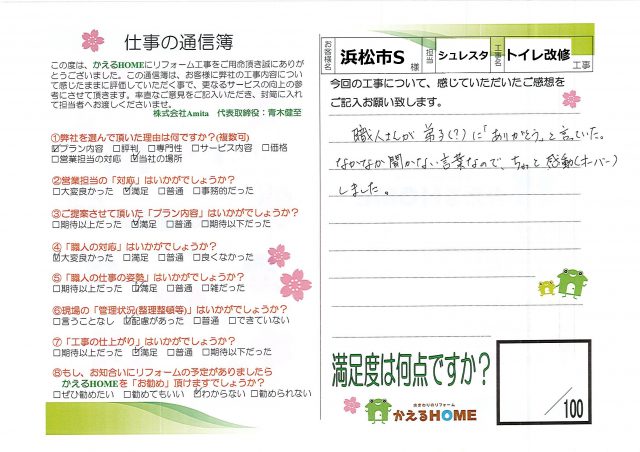 仕事の通信簿
この度は、かえるHOMEにリフォーム工事をご用命頂き誠にありが
とうございました。この通信簿は、お客様に弊社の工事内容につい
て感じたままに評価していただく事で、更なるサービスの向上の参
考にさせて頂きます。率直なご意見をご記入いただき、封筒に入れ
て担当者へお渡しくださいませ。
株式会社Amita 代表取締役：青木健至
①弊社を選んで頂いた理由は何ですか？(複数可)
☑プラン内容 □評判 □専門性 □サービス内容 □価格
□営業担当の対応 ☑当社の場所
②営業担当の「対応」はいかがでしょうか？
□大変良かった ☑満足 □普通 □事務的だった
③ご提案させて頂いた「プラン内容」はいかがでしょうか？
□期待以上だった ☑満足 □普通 □期待以下だった
④「職人の対応」はいかがでしょうか？
☑大変良かった □満足 □普通 □良くなかった
⑤「職人の仕事の姿勢」はいかがでしょうか？
□期待以上だった ☑満足 □普通 □雑だった
⑥現場の「管理状況(整理整頓等)」はいかがでしょうか？
□言うことなし ☑配慮があった □普通 □できていない
⑦「工事の仕上がり」はいかがでしょうか？
□期待以上だった ☑満足 □普通 □期待以下だった
⑧もし、お知合いにリフォームの予定がありましたら
かえるHOMEを「お勧め」頂けますでしょうか？
□ぜひ勧めたい □勧めてもいい ☑わからない □勧められない
お客様名 浜松市S 様 担当 シュレスタ 工事名 トイレ改修 工事
今回の工事について、感じていただいたご感想を
ご記入お願い致します。
職人さんが弟子(?)に「ありがとう」と言っていた。
なかなか聞かない言葉なので、ちょっと感動(オーバー)
しました。
満足度は何点ですか？
／100
水まわりのリフォーム
かえるHOME